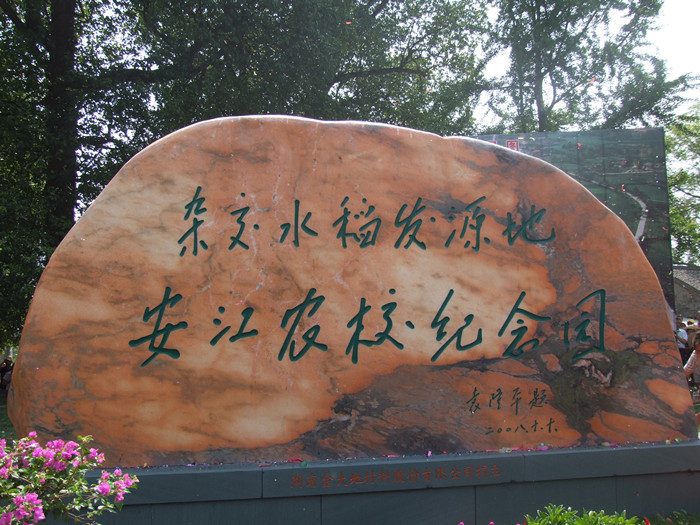 杂交水稻发源地
安江农校纪念园
袁隆平题
二〇〇八.十.六